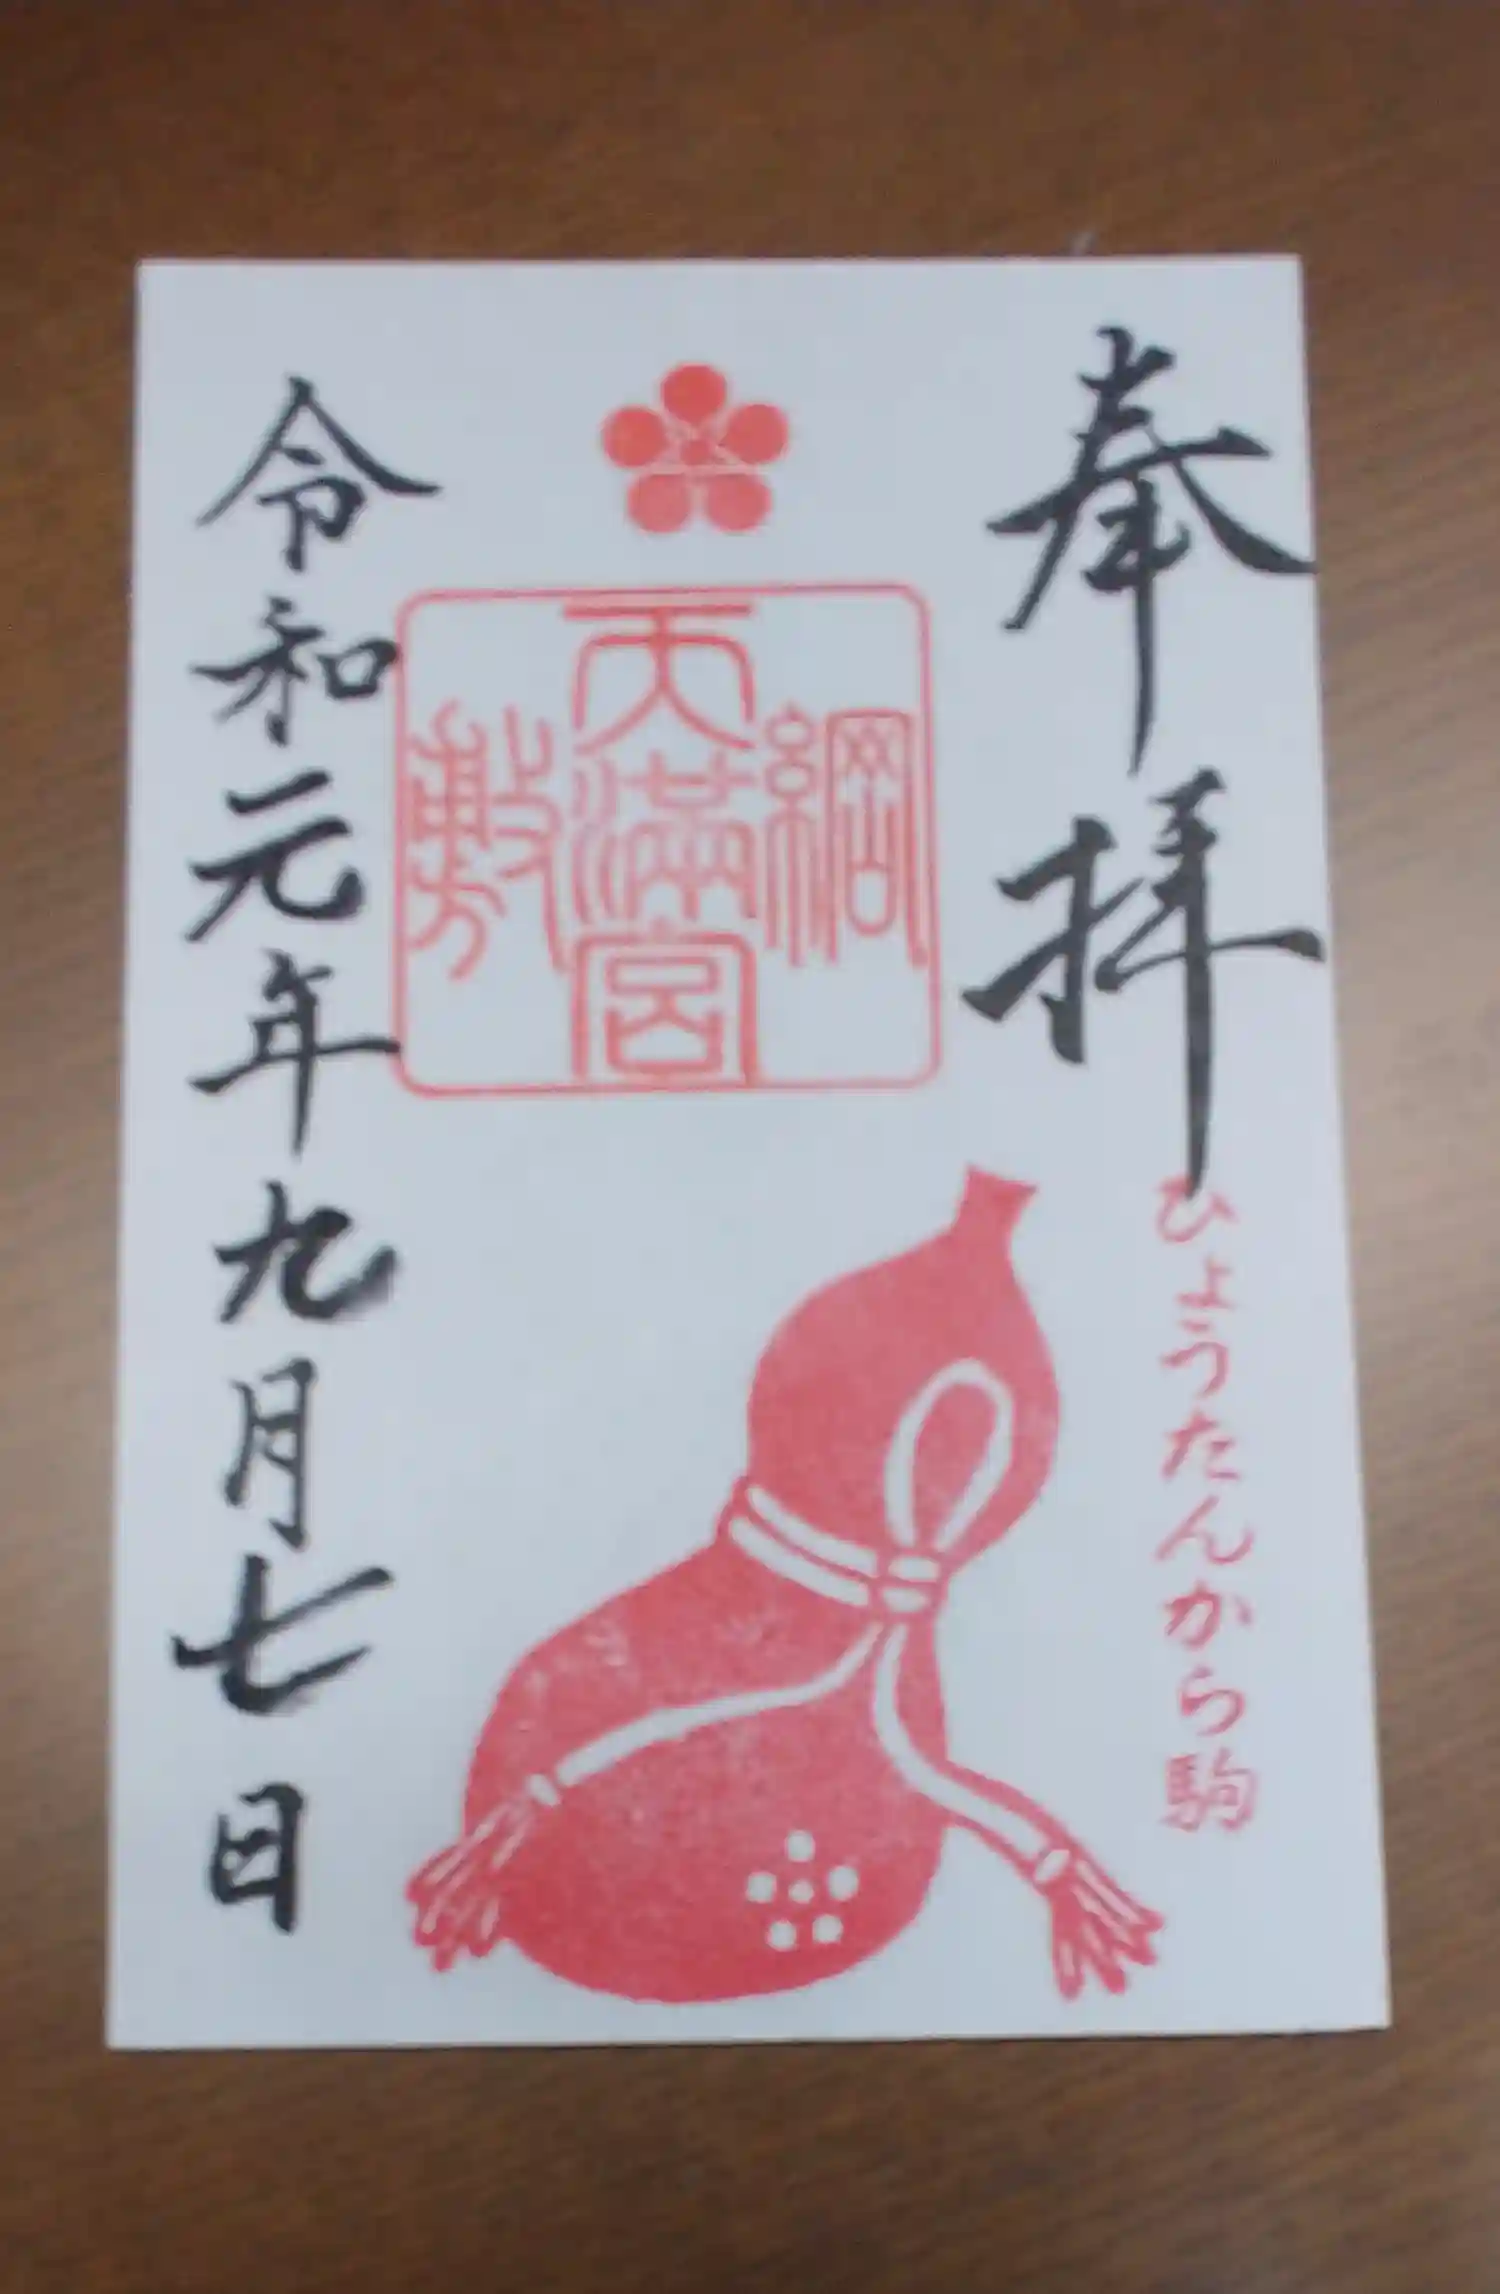 奉拝
ひょうたんから駒
綱敷
天満宮
令和元年九月七日